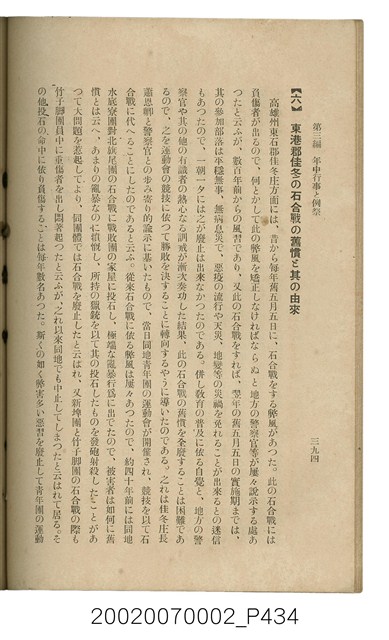 第三編　年中行事と例祭
三九四
【六】　東港郡佳冬の石合戰の舊慣と其の由來
高雄州東石郡佳冬庄方面には、昔から每年舊五月五日に、石合戰をする弊風があつた。此の石合戰には
負傷者が出るので、何とかして此の弊風を矯正しなければならぬと地方の警察官等が屢々說示する處あ
つたと云ふが、數百年前からの風習であり、又此の石合戰をすれば、翌年の舊五月五日の實施期までは、
其の參加部落は平穩無事、無病息災で、惡疫の流行や天災、地變等の災禍を免れることが出來るとの迷信
もあつたので、一朝一夕には之が廢止は出來なかつたのである。併し敎育の普及に依る自覺と、地方の警
察官や其の他の有識者の熱心なる訓戒が漸次奏功した結果、此の石合戰の舊慣を全廢することは困難であ
るので、之を運動會の競技に依つて勝敗を決することに轉向するやうに導いたのである。之れは佳冬庄長
蕭恩鄕と警察官との步み寄り的諭示に基いたもので、當日同地靑年團の運動會が開催され、競技を以て石
合戰に代へることにしたのであると云ふ。從來石合戰に依る弊風は屢々あつたので、約四十年前には同地
水底寮團對北旗尾團の石合戰に戰敗團の家屋に投石し、極端な亂暴行爲に出でたので、被害者は如何に舊
慣とは云へ、あまりの亂暴なのに憤慨し、所持の獵銃を以て其の投石したものを發砲射殺したことがあ
つて大問題を惹起してより、同團體では石合戰を廢止したと云はれ、又新埤團と竹子脚團の石合戰の際も
竹子脚團員中に重傷者を出し悶著起つたと云ふが、之れ以來同地でも中止してしまつたと云はれて居る。そ
の他投石の命中に依り負傷することは每年數名あつた。斯くの如く弊害多い惡習を廢止して靑年團の運動
20020070002_P434